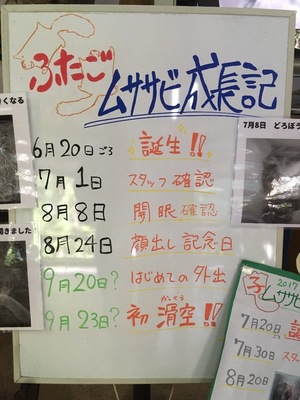 ふたご
ムササビ成長記
6月20日ごろ 誕生!!
7月1日 スタッフ確認
8月8日 開眼確認
8月24日 顔出し記念日
9月20日? はじめての外出
9月23日? 初滑空!!
かっくう
くなる
開きました
7月8日 どろぼう
2017
ムササ
7月20日 誕
7月30日 スタ
8月20